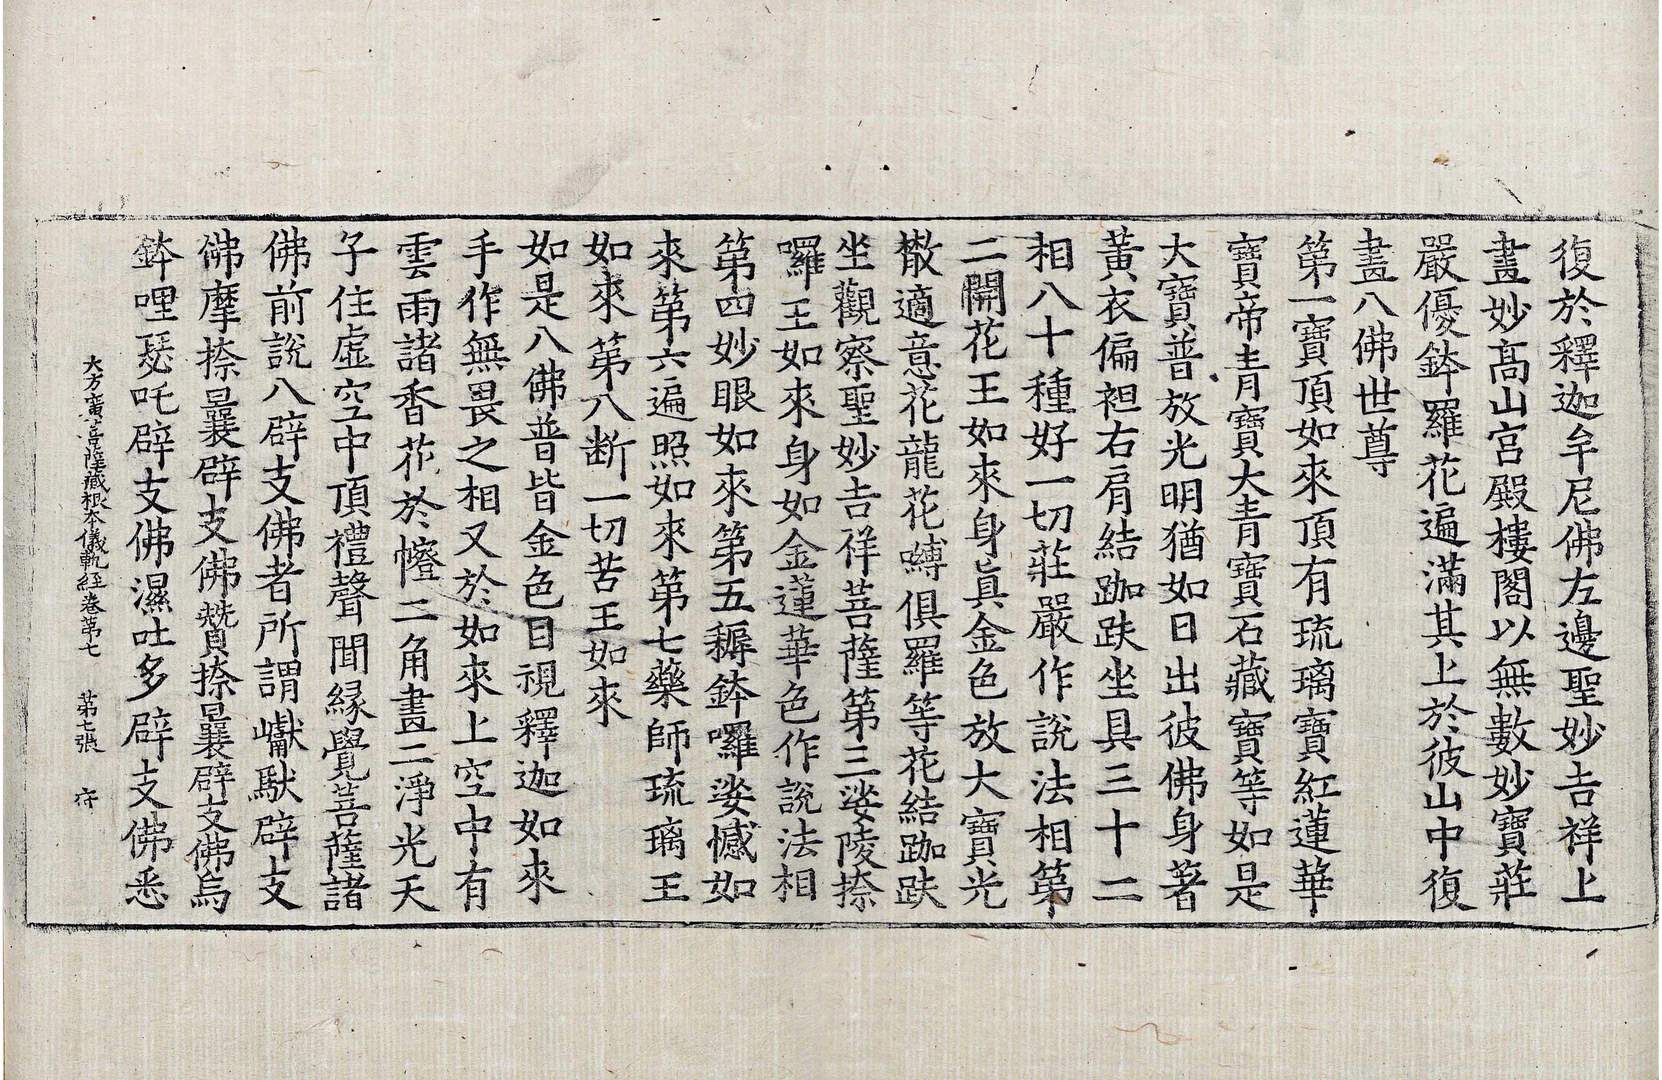 復於釋迦牟尼佛左邊聖妙吉祥上
畫妙高山宮殿樓閣以無數妙寶莊
嚴優鉢羅花遍滿其上於彼山中復
畫八佛世尊
第一寶頂如來頂有琉璃寶紅蓮華
寶帝青寶大青寶石藏寶等如是
大寶普放光明猶如日出彼佛身著
黃衣偏袒右肩結跏趺坐具三十二
相八十種好一切莊嚴作說法相第
二開花王如來身真金色放大寶光
撒適意花龍花嚩俱羅等花結跏趺
坐觀察聖妙吉祥菩薩第三娑陵捺
囉王如來身如金蓮華色作說法相
第四妙眼如來第五耨鉢囉娑憾如
來第六遍照如來第七藥師琉璃王
如來第八断一切苦王如來
如是八佛普皆金色目視釋迦如來
手作無畏之相又於如來上空中有
雲雨諸香花於幢二角畫二淨光天
子住虛空中頂禮聲聞緣覺菩薩諸
佛前說八辟支佛者所謂巘馱辟支
佛摩捺曩辟支佛贊捺曩辟支佛烏
鉢哩瑟吒辟支佛濕吐多辟支佛悉
大方廣菩薩藏根本儀軌経卷第七 第七張